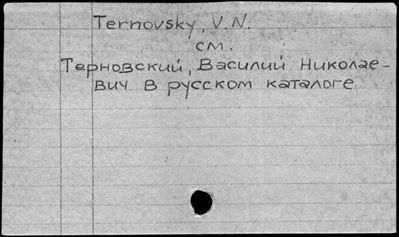 Ternovsky, V.N.
см.
Терновский, Василий Николае-
вич в русском каталоге